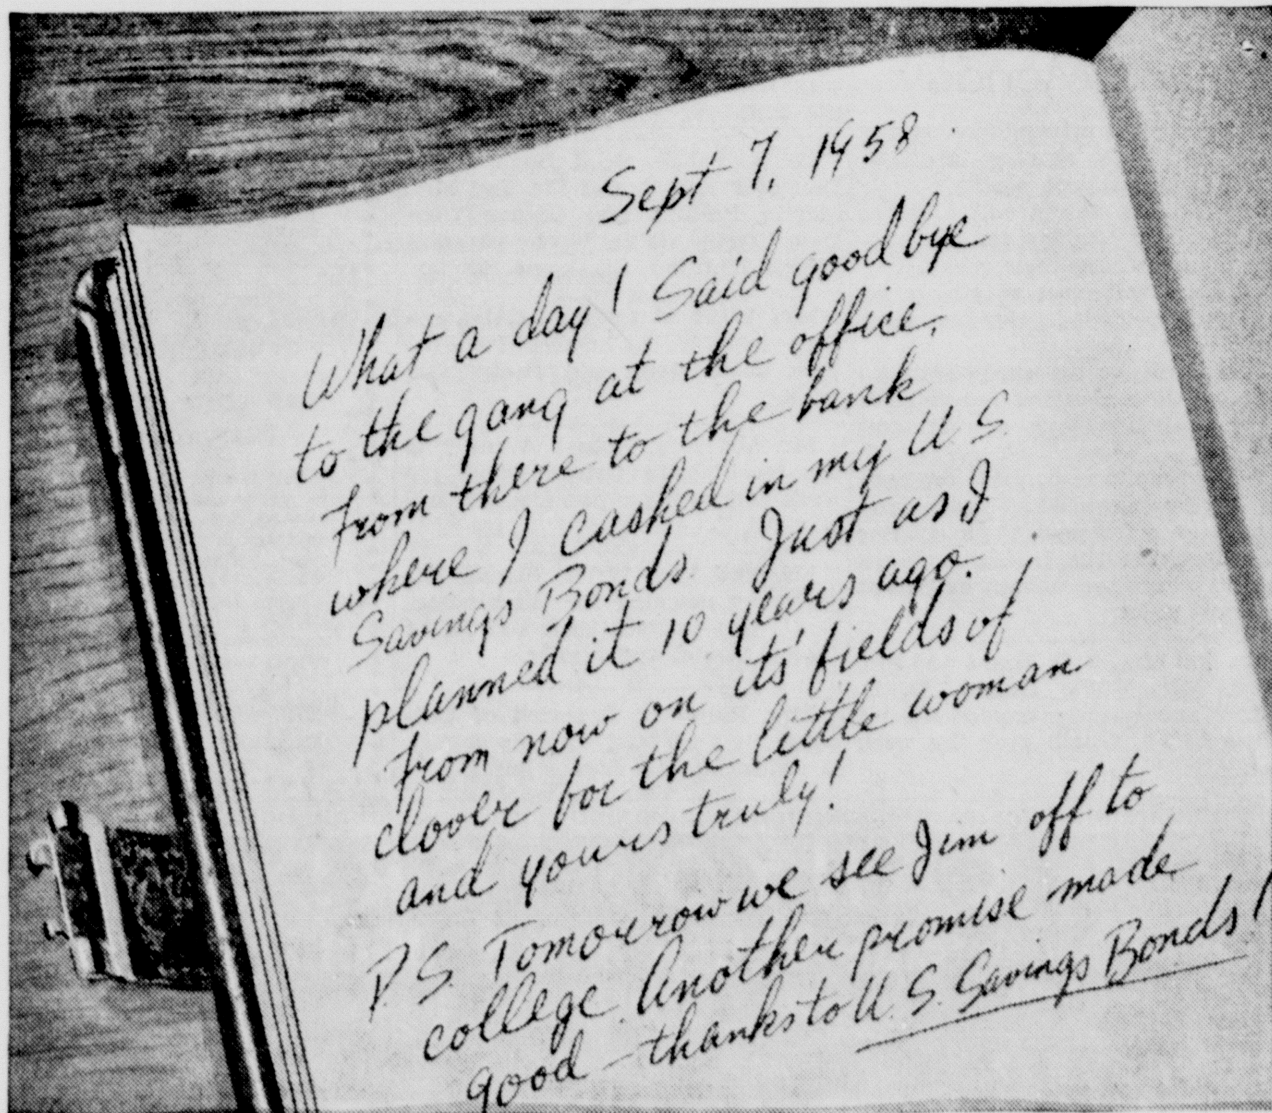 Sept 7, 1958
What a day! Said good bye
to the gang at the office.
From there to the bank
where I cashed in my U.S.
Savings Bonds. Just as I
planned it 10 years ago.
From now on its' fields of
clover for the little woman
and yours truly!
P.S. Tomorrow we see Jim off to
college. Another promise made
good - thanks to U.S. Savings Bonds!